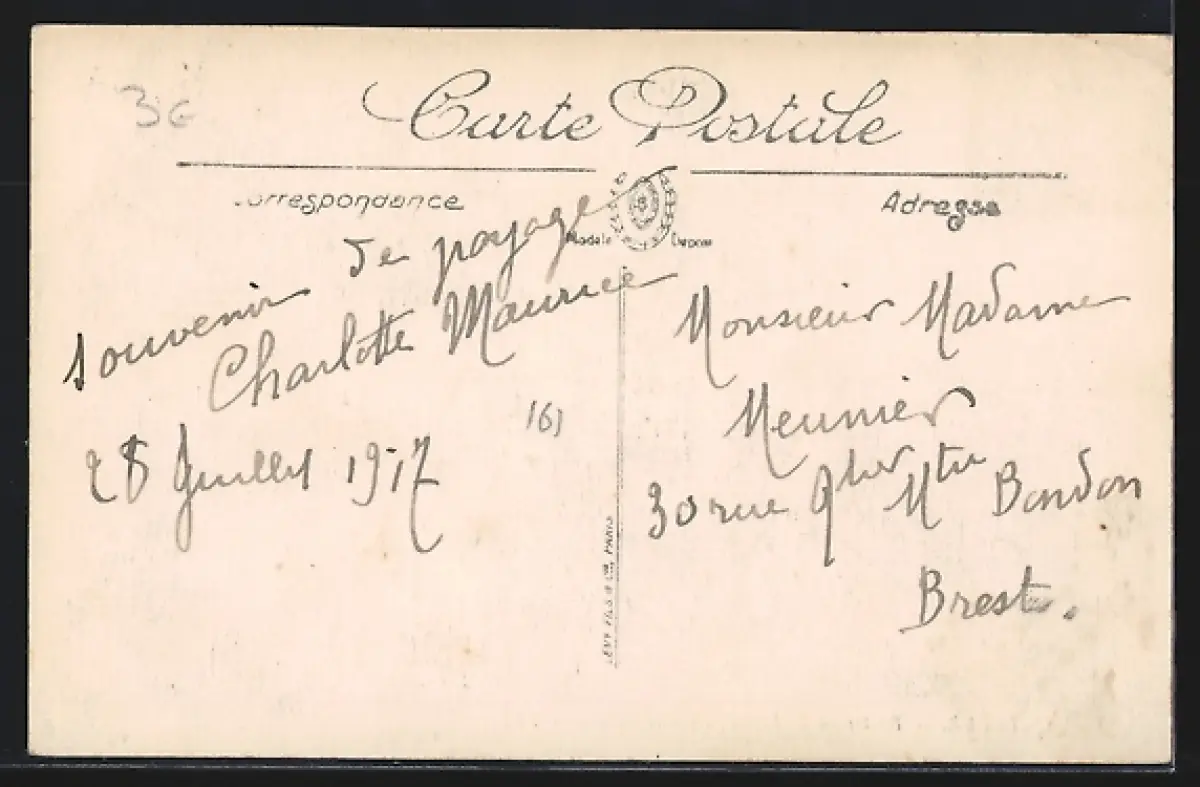 3G
Carte Postale
Correspondance
Adresse
Modèle Déposé
souvenir de voyage
Charlotte Maurice
28 Juillet 1917
161
LEVY FILS & Cie, PARIS
Monsieur Madame
Meunier
30 rue Qtier Mtre Bondon
Brest.